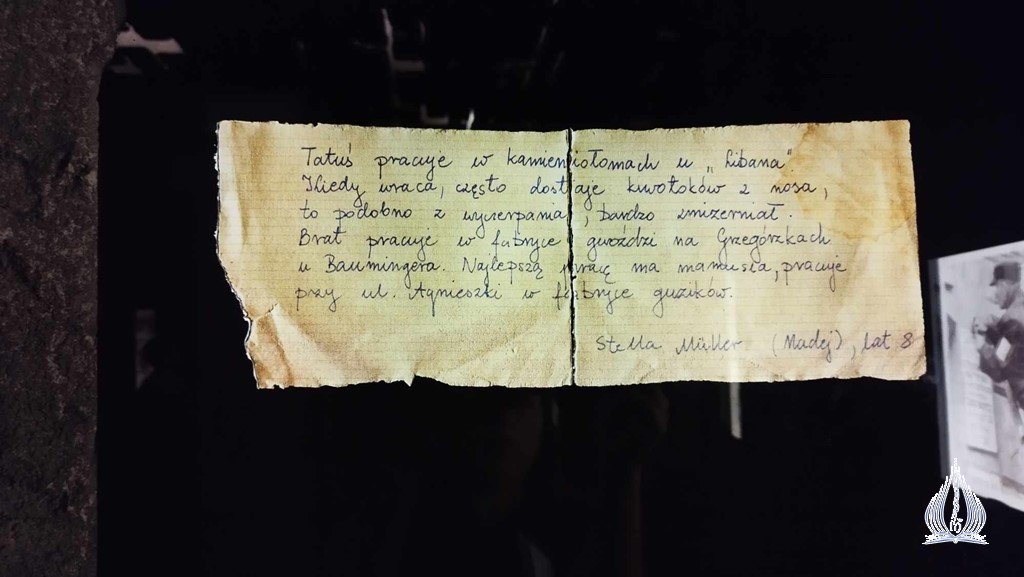 Tatuś pracuje w kamieniołomach u „Libana”.
Kiedy wraca, często dostaje krwotoków z nosa,
to podobno z wyczerpania, bardzo zmizerniał.
Brat pracuje w fabryce gwoździ na Grzegórzkach
u Baumingera. Najlepszą pracę ma mamusia, pracuje
przy ul. Agnieszki w fabryce guzików.
Stella Müller (Madej), lat 8